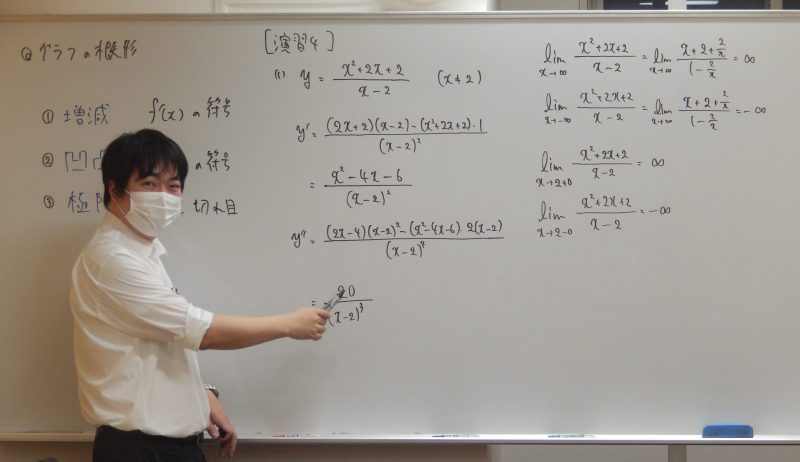 ◎グラフの概形
① 増減 f'(x) の符号
② 凹凸 の符号
③ 極限 切れ目
[演習4]
(1) y = (x²+2x+2)/(x-2) (x≠2)
y' = ((2x+2)(x-2)-(x²+2x+2)・1)/(x-2)²
= (x²-4x-6)/(x-2)²
y'' = ((2x-4)(x-2)²-(x²-4x-6)・2(x-2))/(x-2)⁴
= 20/(x-2)³
lim x→∞ (x²+2x+2)/(x-2) = lim x→∞ (x+2+2/x)/(1-2/x) = ∞
lim x→-∞ (x²+2x+2)/(x-2) = lim x→∞ (x+2+2/x)/(1-2/x) = -∞
lim x→2+0 (x²+2x+2)/(x-2) = ∞
lim x→2-0 (x²+2x+2)/(x-2) = -∞